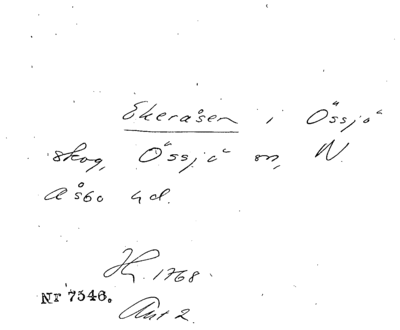 Ekeråsen i Össjö
skog, Össjö sn, N.
Åsbo hd.
1768.
Nr 7546.
Akt 2.